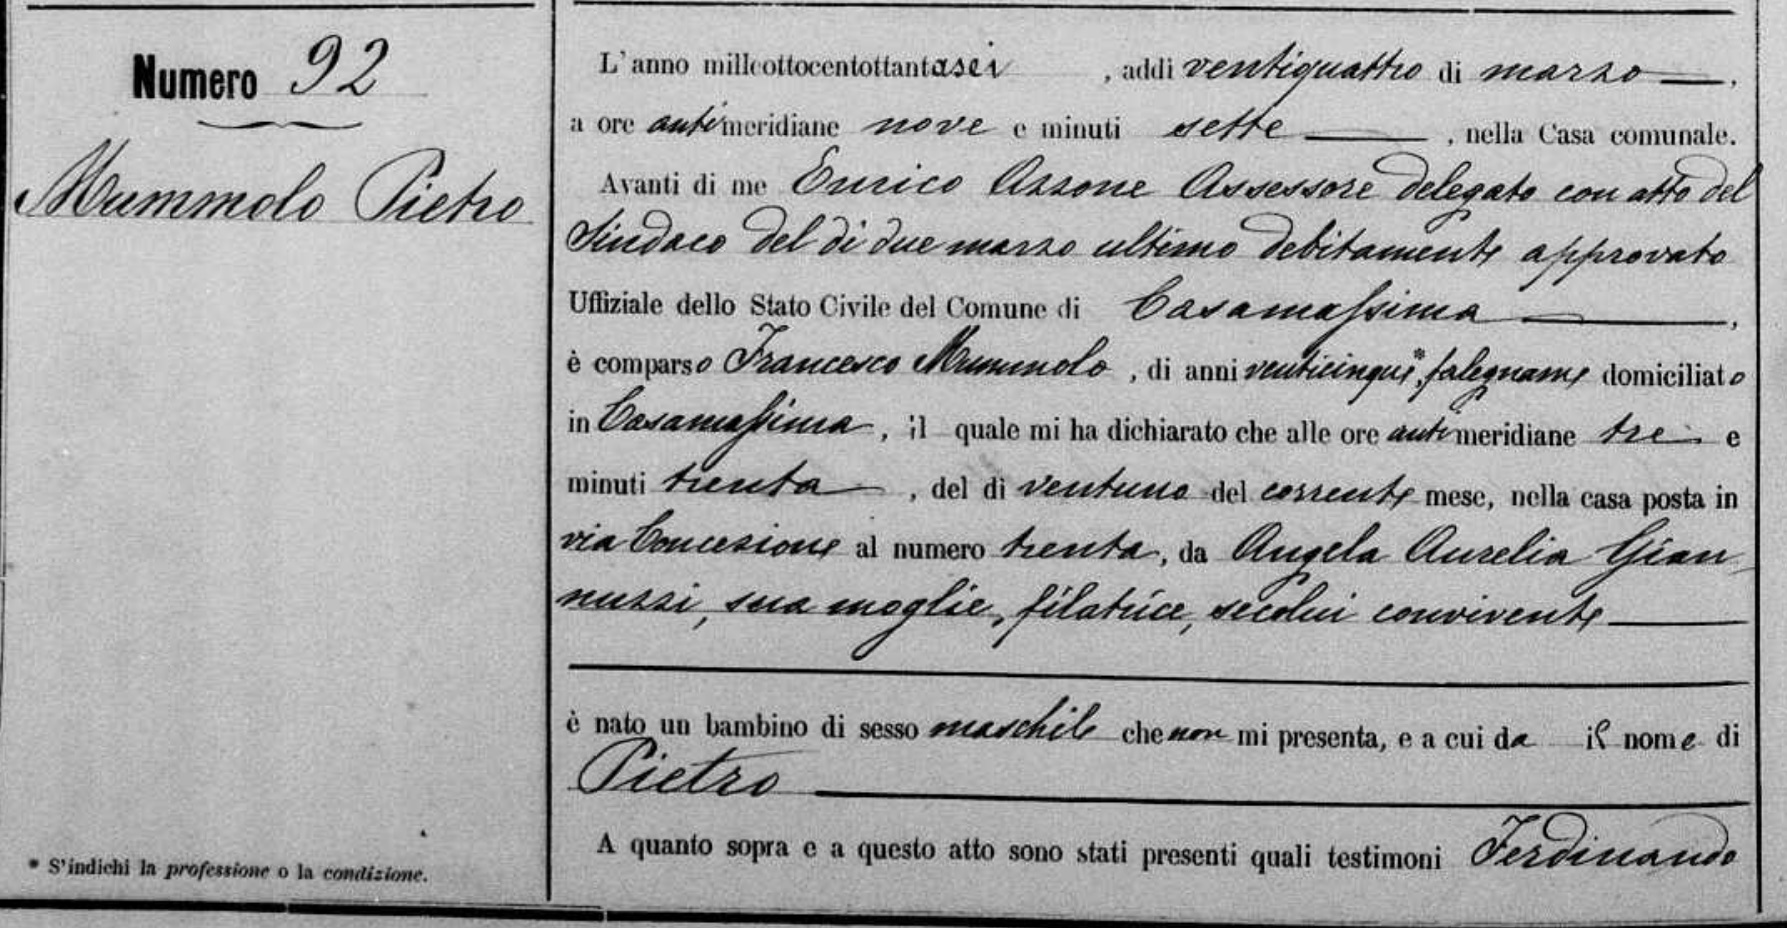 Numero 92
Mummolo Pietro
* S'indichi la professione o la condizione.
L'anno milleottocentottantasei , addì ventiquattro di marzo ,
a ore antimeridiane nove e minuti sette , nella Casa comunale.
Avanti di me Enrico Azzone Assessore delegato con atto del
Sindaco del dì due marzo ultimo debitamente approvato
Uffiziale dello Stato Civile del Comune di Casamassima ,
è comparso Francesco Mummolo , di anni venticinque*, falegname domiciliato
in Casamassima , il quale mi ha dichiarato che alle ore antimeridiane tre e
minuti trenta , del dì ventuno del corrente mese, nella casa posta in
via Concezione al numero trenta, da Angela Aurelia Gian
nuzzi, sua moglie, filatrice, secolui convivente
è nato un bambino di sesso maschile che non mi presenta, e a cui da il nome di
Pietro
A quanto sopra e a questo atto sono stati presenti quali testimoni Ferdinando